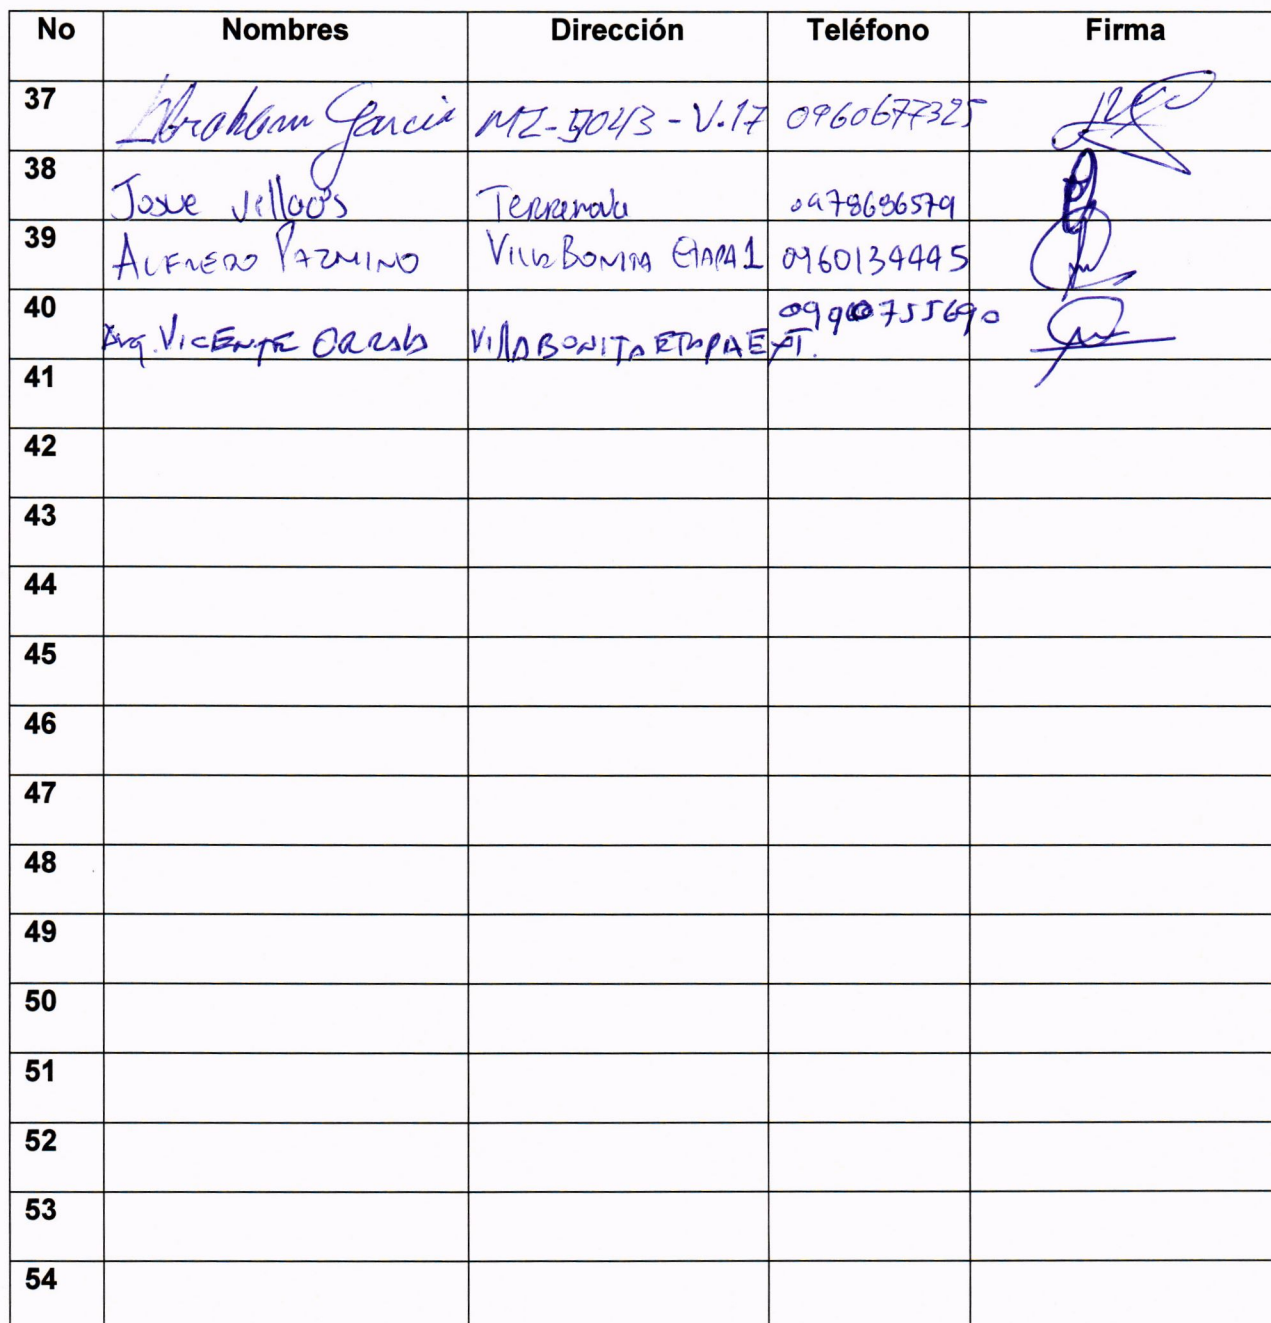 No Nombres Dirección Teléfono Firma
37 Abraham Garcia MZ-5043-V.17 0960677325
38 Josue Terranova 0978686579
39 ALFREDO PAZMINO VILLA BONITA ETAPA 1 0960134445
40 Arq. VICENTE VILLA BONITA ETAPA EXT.
41
42
43
44
45
46
47
48
49
50
51
52
53
54